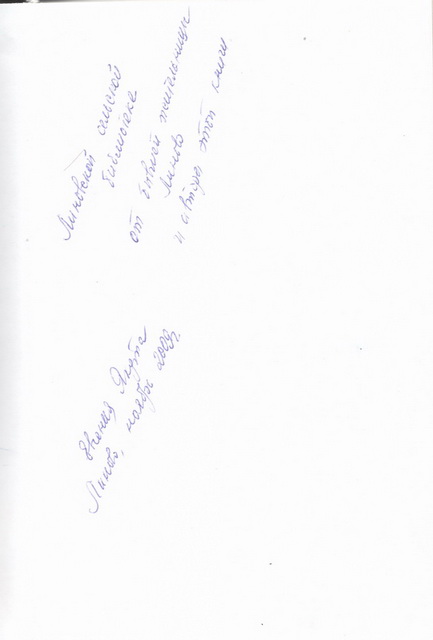 Линовской сельской
библиотеке
от бывшей жительницы
Линово
и автора этой книги
Евгения Янута
Линово, ноябрь 2009г.